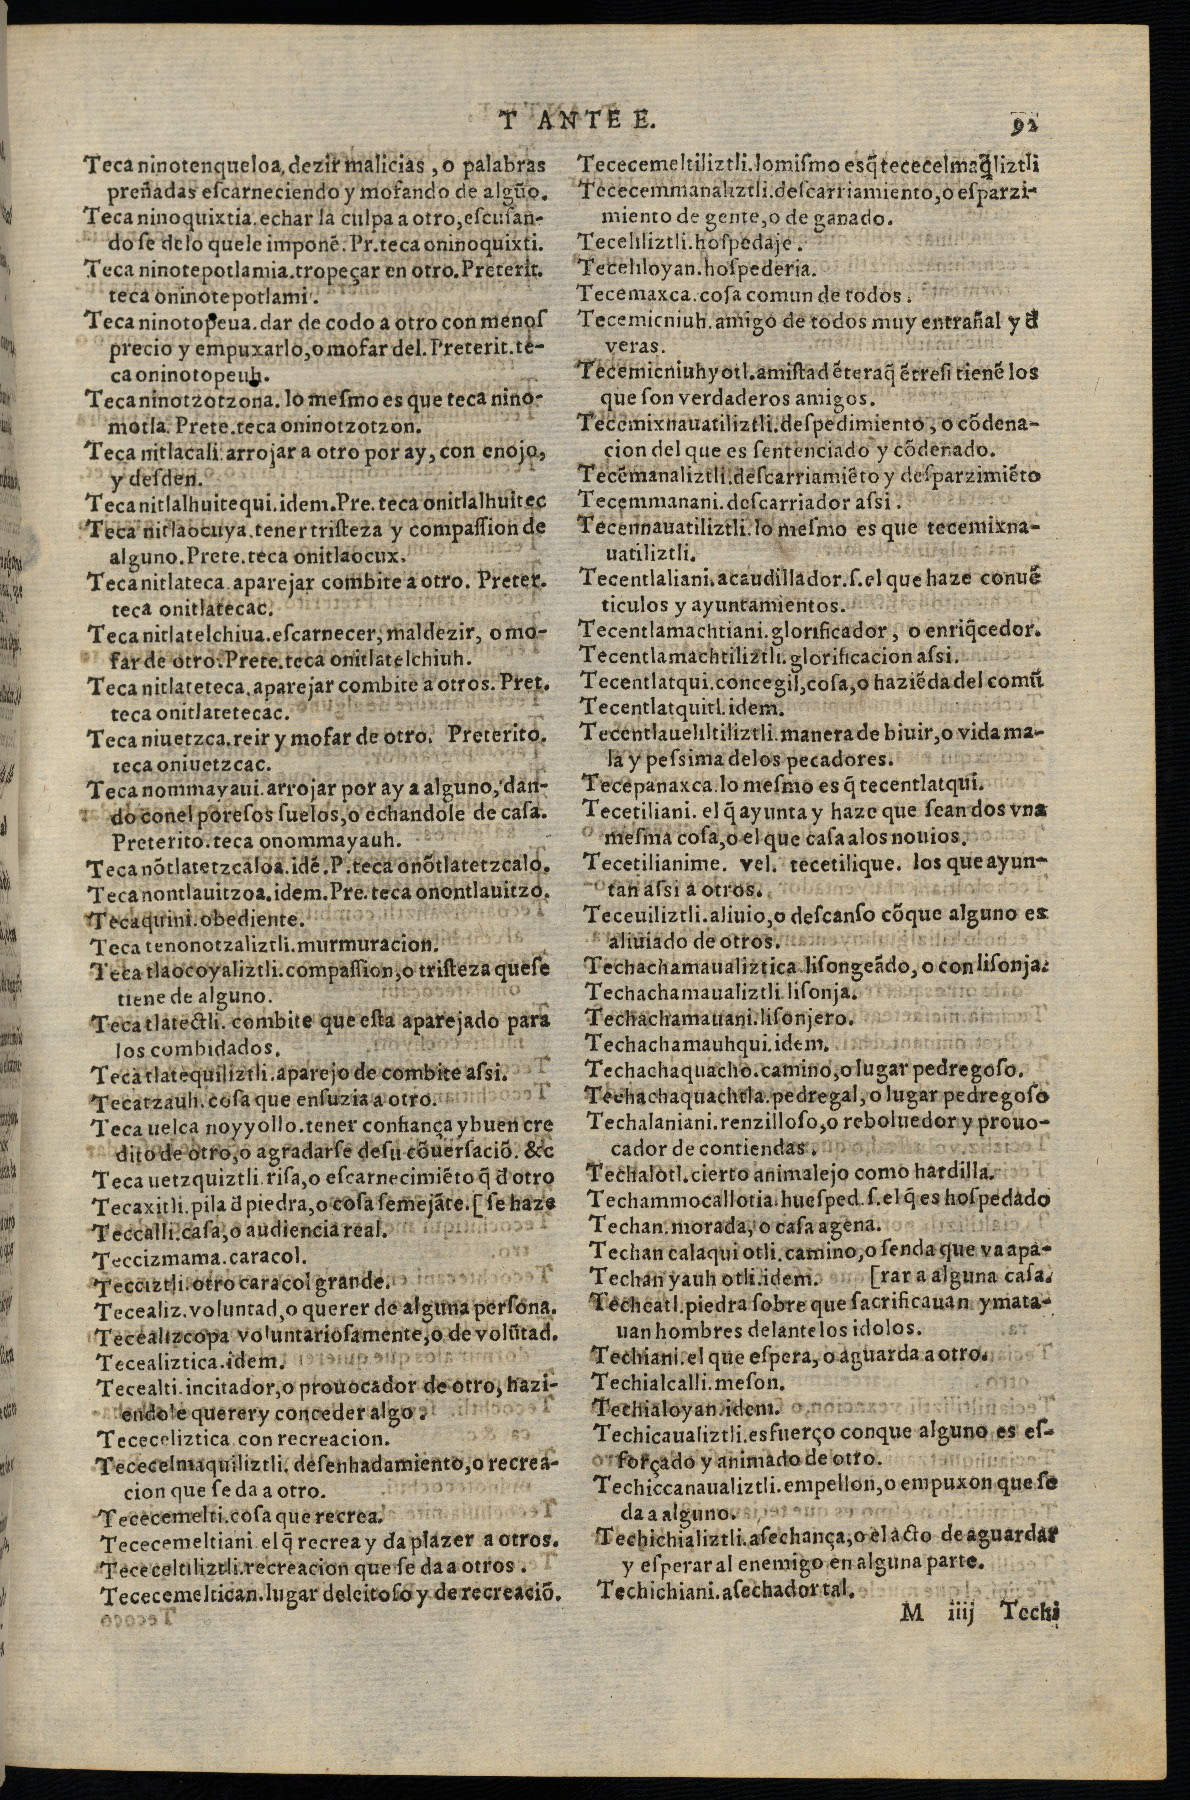 T ANTE E.
92
Teca ninotenqueloa, dezir malicias , o palabras
preñadas eſcarneciendo y mofando de algũo.
Teca ninoquixtia. echar la culpa a otro, eſcuſan-
do ſe delo quele imponẽ. Pr. teca oninoquixti.
Teca ninotepotlamia. tropeçar en otro. Preterit.
teca oninotepotlami.
Teca ninotopeua. dar de codo a otro con menoſ
precio y empuxarlo, o mofar del. Preterit. te-
ca oninotopeuh.
Teca ninotzotzona. lo meſmo es que teca nino-
motla. Prete. teca oninotzotzon.
Teca nitlacali. arrojar a otro por ay, con enojo,
y deſden.
Teca nitlalhuitequi. idem. Pre. teca onitlalhuitec
Teca nitlaocuya. tener triſteza y compaſſion de
alguno. Prete. teca onitlaocux.
Teca nitlateca. aparejar combite a otro. Preter.
teca onitlatecac.
Teca nitlatelchiua. eſcarnecer, maldezir, o mo-
far de otro. Prete. teca onitlatelchiuh.
Teca nitlateteca. aparejar combite a otros. Pret.
teca onitlatetecac.
Teca niuetzca. reir y mofar de otro. Preterito.
teca oniuetzcac.
Teca nommayaui. arrojar por ay a alguno, dan-
do conel poreſos ſuelos, o echandole de caſa.
Preterito. teca onommayauh.
Teca nõtlatetzcaloa. idẽ. P. teca onõtlatetzcalo.
Teca nontlauitzoa. idem. Pre. teca onontlauitzo.
Tecaquini. obediente.
Teca tenonotzaliztli. murmuracion.
Teca tlaocoyaliztli. compaſſion, o triſteza queſe
tiene de alguno.
Teca tlatectli. combite que eſta aparejado para
los combidados.
Teca tlatequiliztli. aparejo de combite aſsi.
Tecatzauh. coſa que enſuzia a otro.
Teca uelca noyyollo. tener confiança y buen cre
dito de otro, o agradarſe deſu cõuerſaciõ. &c
Teca uetzquiztli. riſa, o eſcarnecimiẽto q̃ d̃ otro
Tecaxitli. pila d̃ piedra, o coſa ſemejãte. [ ſe haze
Teccalli. caſa, o audiencia real.
Teccizmama. caracol.
Tecciztli. otro caracol grande.
Tecealiz. voluntad, o querer de alguna perſona.
Tecealizcopa voluntarioſamente, o de volũtad.
Tecealiztica. idem.
Tecealti. incitador, o prouocador de otro, hazi-
endole querer y conceder algo .
Tececeliztica con recreacion.
Tececelmaquiliztli. deſenhadamiento, o recrea-
cion que ſe da a otro.
Tececemelti. coſa que recrea.
Tececemeltiani. el q̃ recrea y da plazer a otros.
Tececeltiliztli. recreacion que ſe da a otros .
Tececemeltican. lugar deleitoſo y de recreaciõ.
Tececemeltiliztli. lo miſmo es q̃ tececelmaq̃liztli
Tececemmanaliztli. deſcarriamiento, o eſparzi-
miento de gente, o de ganado.
Teceliliztli. hoſpedaje .
Tecelıloyan. hoſpederia.
Tecemaxca. coſa comun de todos .
Tecemicniuh. amigo de todos muy entrañal y d̃
veras.
Tecemicniuhyotl. amiſtad ẽteraq̃ ẽtreſi tienẽ los
que ſon verdaderos amigos.
Tecemixnauatiliztli. deſpedimiento, o cõdena-
cion del que es ſentenciado y cõdenado.
Tecẽmanaliztli. deſcarriamiẽto y deſparzimiẽto
Tecemmanani. deſcarriador aſsi .
Tecennauatiliztli. lo meſmo es que tecemixna-
uatiliztli.
Tecentlaliani. acaudillador. ſ. el que haze conuẽ
ticulos y ayuntamientos.
Tecentlamachtiani. glorificador , o enriq̃cedor.
Tecentlamachtiliztli. glorificacion aſsi.
Tecentlatqui. concegil, coſa, o haziẽda del comũ
Tecentlatquitl. idem.
Tecentlauelıltiliztli. manera de biuir, o vida ma-
la y peſsima delos pecadores.
Tecepanaxca. lo meſmo es q̃ tecentlatqui.
Tecetiliani. el q̃ ayunta y haze que ſean dos vna
meſma coſa, o el que caſa alos nouios.
Tecetilianime. vel. tecetilique. los que ayun-
tan aſsi a otros.
Teceuiliztli. aliuio, o deſcanſo cõque alguno es
aliuiado de otros.
Techachamaualiztica. liſongeãdo, o con liſonja.
Techachamaualiztli. liſonja.
Techachamauani. liſonjero.
Techachamauhqui. idem.
Techachaquacho. camino, o lugar pedregoſo.
Techachaquachtla. pedregal, o lugar pedregoſo
Techalaniani. renzilloſo, o reboluedor y prouo-
cador de contiendas .
Techalotl. cierto animalejo como hardilla.
Techammocallotia. hueſped. ſ. el q̃ es hoſpedado
Techan. morada, o caſa agena.
Techan calaqui otli. camino, o ſenda que va apa-
Techan yauh otli. idem. [rar a alguna caſa.
Techcatl. piedra ſobre que ſacrificauan y mata-
uan hombres delante los idolos.
Techiani. el que eſpera, o aguarda a otro.
Techialcalli. meſon.
Techialoyan. idem.
Techicaualiztli. esfuerço conque alguno es eſ-
forçado y animado de otro.
Techiccanaualiztli. empellon, o empuxon que ſe
da a alguno.
Techichializtli. aſechança, o el acto de aguardar
y eſperar al enemigo en alguna parte.
Techichiani. aſechador tal.
M iiij Techi